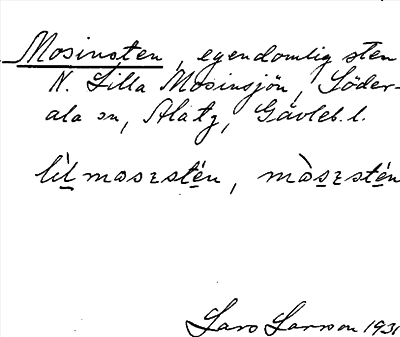 Mosinsten, egendomlig sten
N. Lilla Mosinsjön, Söder-
ala sn, Alätg, Gävleb. l.
lìlmosɛstén, mòsɛstén
Lars Larsson 1931